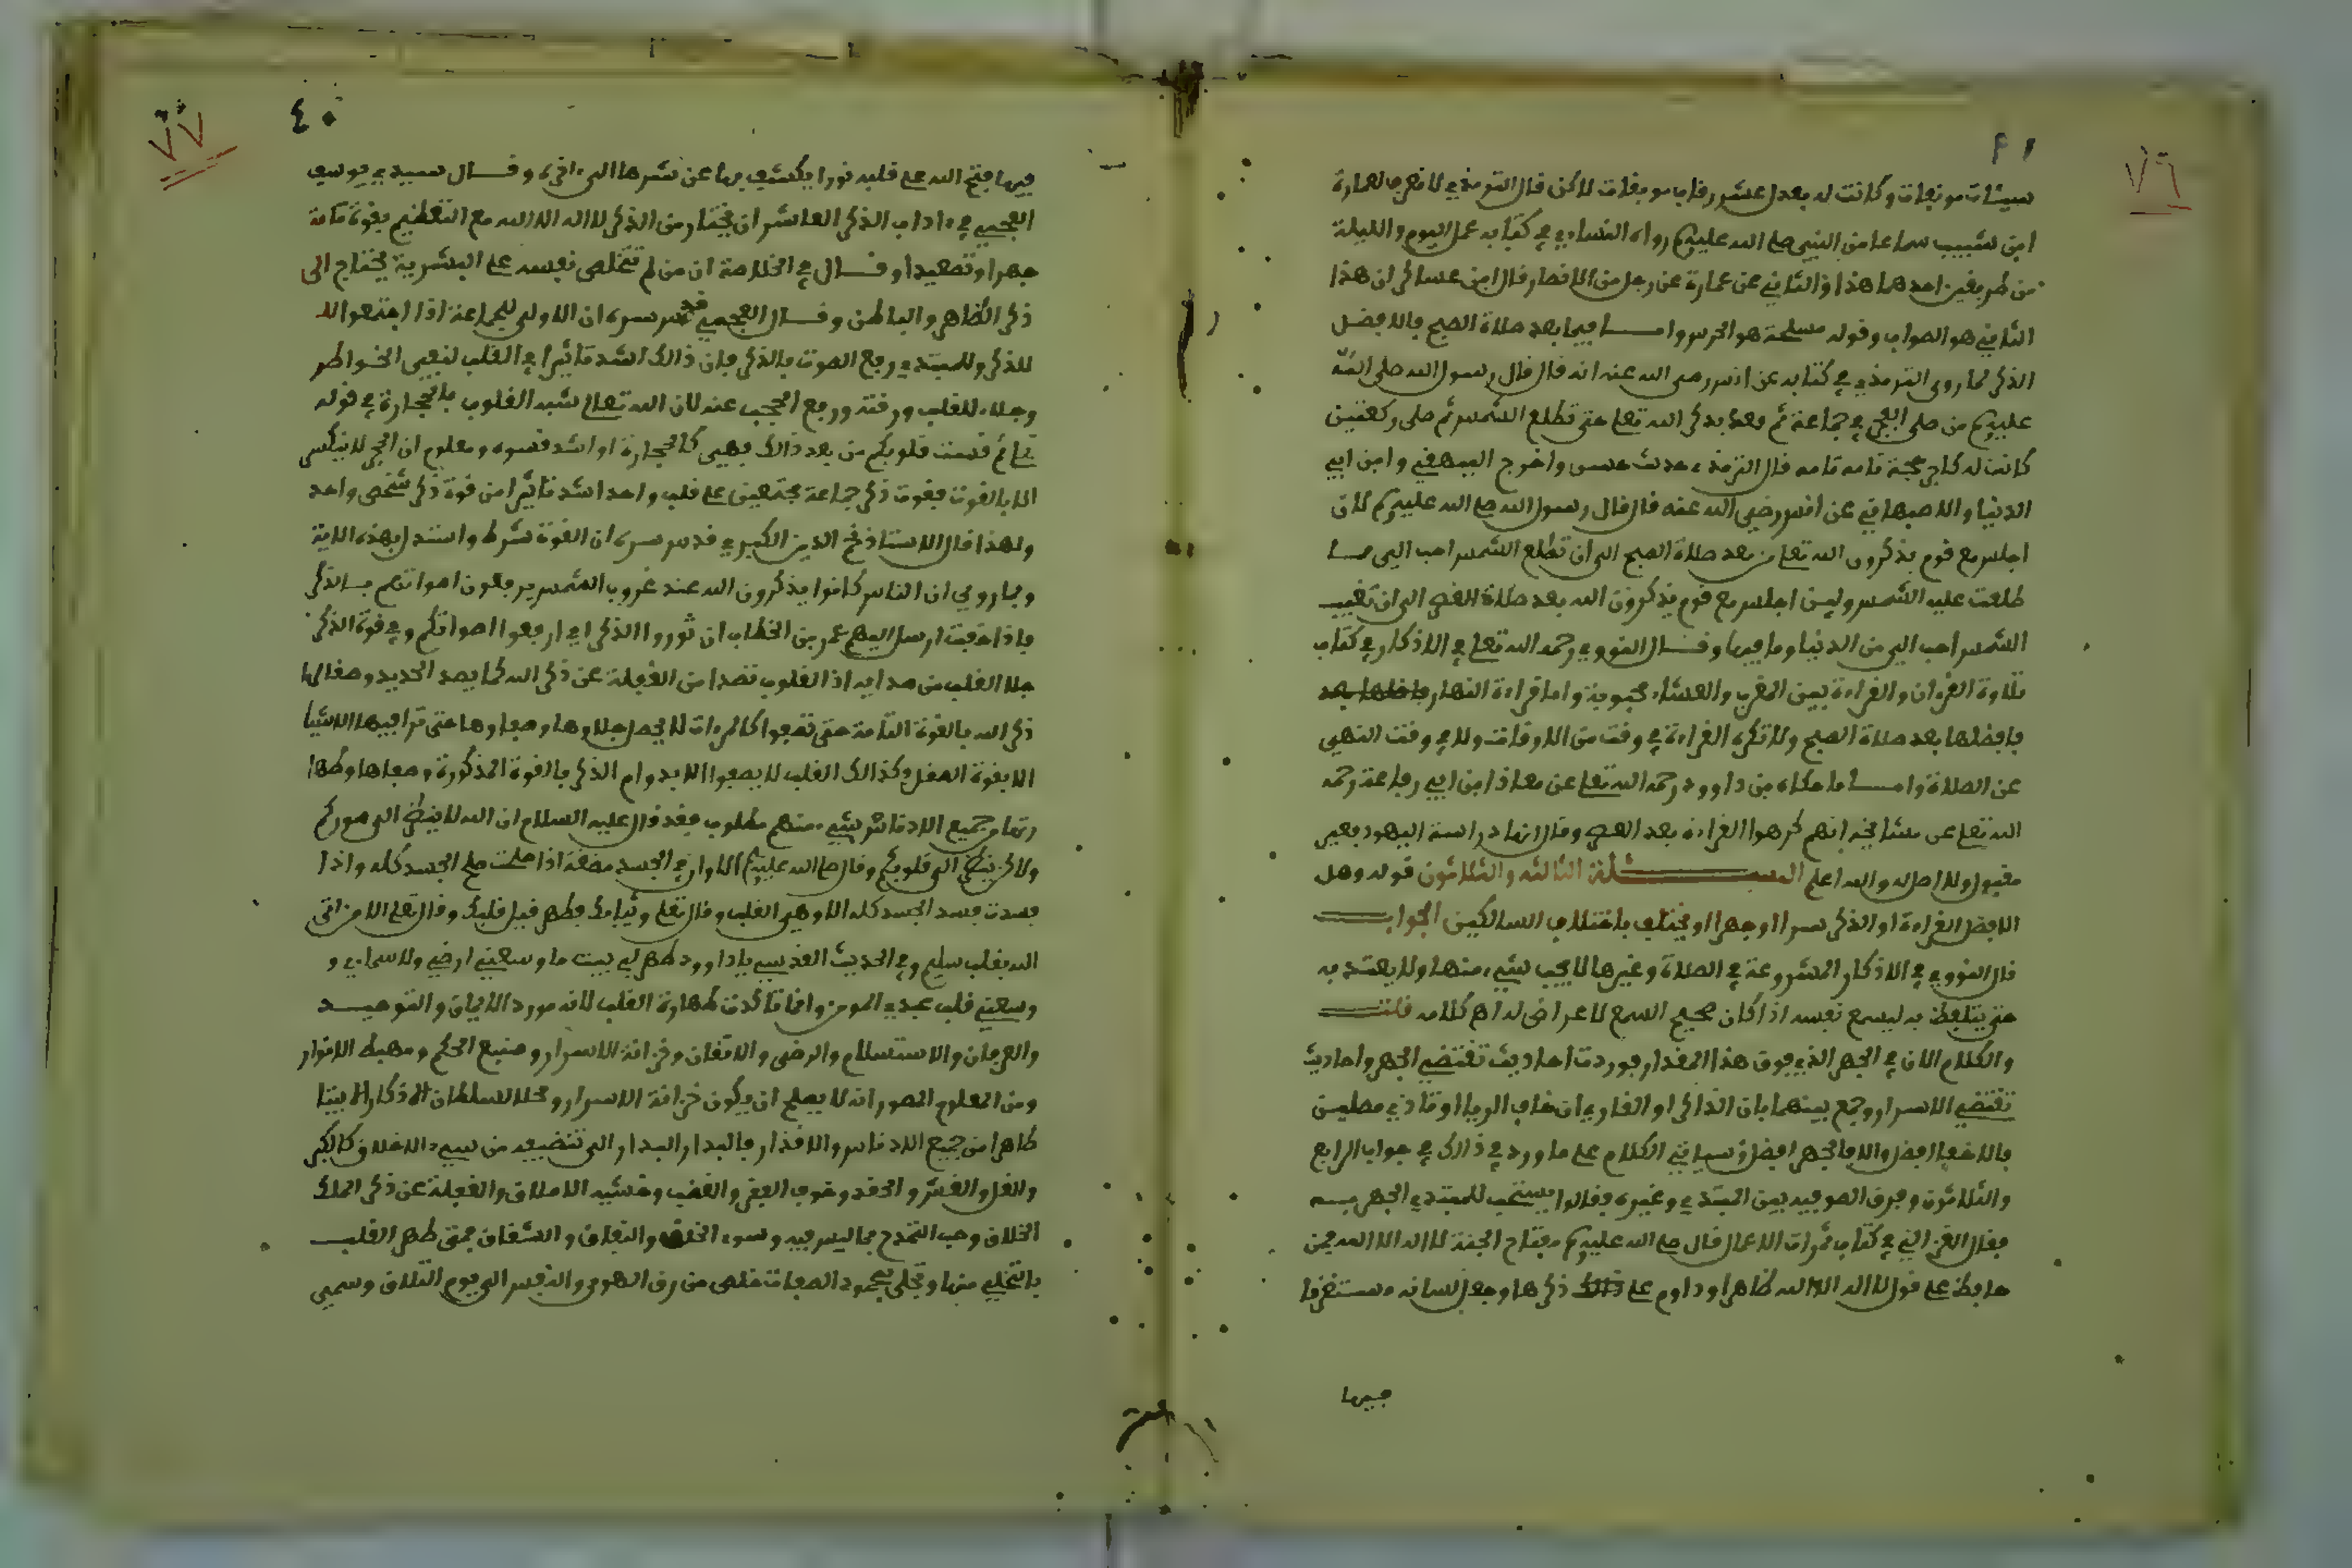 ٧٦
٤١
سيئات موبقات وكانت له بعدل عشر رقاب موبقات لاكن قال الترمذي لا نعرف لعمارة
ابن شبيب سماعا من النبي صلى الله عليه وسلم رواه النساءي في كتابه عمل اليوم والليلة
من طريقين احدهما هذا والثاني عن عمارة عن رجل من الانصار قال ابن عساكر ان هذا
الثاني هو الصواب وقوله مسلحة هو الحرس واما فيما بعد صلاة الصبح فالافضل
الذكر لما روى الترمذي في كتابه عن انس رضي الله عنه انه قال قال رسول الله صلى الله
عليه وسلم من صلى الفجر في جماعة ثم قعد يذكر الله تعلى حتى تطلع الشمس ثم صلى ركعتين
كانت له كاجر حجة تامه تامه قال الترمذي حديث حسن واخرج البيهقي وابن ابي
الدنيا والاصبهاني عن انس رضي الله عنه قال قال رسول الله صلى الله عليه وسلم لان
اجلس مع قوم يذكرون الله تعلى من بعد صلاة الصبح الى ان تطلع الشمس احب الي مما
طلعت عليه الشمس ولين اجلس مع قوم يذكرون الله بعد صلاة العصر الى ان تغيب
الشمس احب الي من الدنيا وما فيها وقال النووي رحمه الله تعلى في الاذكار في كتاب
تلاوة القرءان والقراءة بين المغرب والعشاء محبوبة واما قراءة النهار فافضلها بعد
فافضلها بعد صلاة الصبح ولا تكره القراءة في وقت من الاوقات ولا في وقت النهي
عن الصلاة واما ما حكاه بن داوود رحمه الله تعلى عن معاذ ابن ابي رفاعة رحمه
الله تعلى عن مشايخه انهم كرهوا القراءة بعد العصر وقالوا انها دراسة اليهود فغير
مقبول ولا اصل له والله اعلم المسئلة الثالثه والثلاثون قوله وهل
الافضل القراءة او الذكر سرا او جهرا او يختلف باختلاف السالكين الجواب
قال النووي في الاذكار المشروعة في الصلاة وغيرها لا يحسب شيء منها ولا يعتد به
حتى يتلفظ به ليسمع نفسه اذا كان صحيح السمع لا عارض له اهـ كلامه قلت
والكلام الان في الجهر الذي فوق هذا المقدار فوردت احاديث تقتضي الجهر واحاديث
تقتضي الاسرار وجمع بينهما بان الذاكر او القاري ان خاف الريا او تاذي مصلين
فالاخفا افضل والا فالجهر افضل وسياتي الكلام على ما ورد في ذالك في جواب الرابع
والثلاثون وفرق الصوفيه بين المبتدي وغيره فقالوا يستحب للمبتدي الجهر به
فقال الغزالي في كتاب ثمرات الاعمال قال صلى الله عليه وسلم مفتاح الجنة لا اله الا الله فمن
حافظ على قول لا اله الا الله ظاهرا وداوم على ذالك ذكرها وجعل لسانه مستغرقا
فيها
٧٧
٤٠
فيها فتح الله على قلبه نورا يكشف بها عن سرها الى ءاخره وقال سيدي يوسف
العجمي في ءاداب الذكر العاشر ان يختار من الذكر لا اله الا الله مع التعظيم بقوة تامة
جهرا وتصعيدا وقال في الخلاصة ان من لم تتخلص نفسه على البشرية يحتاج الى
ذكر الظاهر والباطن وقال العجمي قدس سره ان الاولى للجماعة اذا اجتمعوا
للذكر وللمبتدي رفع الصوت بالذكر فان ذالك اشد تاثيرا في القلب لنفي الخواطر
وجلاء للقلب ورقته ورفع الحجب عنه لان الله تعلى شبه القلوب بالحجارة في قوله
تعلى ثم قست قلوبكم من بعد ذالك فهي كالحجارة او اشد قسوه ومعلوم ان الحجر لا ينكسر
الا بالقوت فقوت ذكر جماعة مجتمعين على قلب واحد اشد تاثيرا من قوة ذكر شخص واحد
ولهذا قال الاستاذ نجم الدين الكبري قدس سره ان القوة شرط واستدل بهذه الاية
وبما روي ان الناس كانوا يذكرون الله عند غروب الشمس يرفعون اصواتهم بالذكر
فاذا خفيت ارسل اليهم عمر بن الخطاب ان ثوروا الذكر اي ارفعوا اصواتكم وفي قوة الذكر
جلا القلب من صدايه اذ القلوب تصدا من الغفلة عن ذكر الله كما يصد الحديد وصقالها
ذكر الله بالقوة التامة حتى تصفوا كالمراءت لا يحصل جلاوها وصفاوها حتى تراء فيها الاشيا
الا بقوة الصقل وكذالك القلب لا يصفوا الا بدوام الذكر بالقوة المذكورة وصفاها وطها
رتها من جميع الادناس شيء منهم مطلوب فقد قال عليه السلام ان الله لا ينظر الى صوركم
ولاكن ينظر الى قلوبكم وقال صلى الله عليه وسلم الا وان في الجسد مضغة اذا صلحت صلح الجسد كله واذا
فسدت فسد الجسد كله الا وهي القلب وقال تعلى وثيابك فطهر قيل قلبك وقال تعلى الا من اتى
الله بقلب سليم وفي الحديث القدسي يا داوود طهر لي بيت ما وسعني ارضي ولا سماءي و
وسعني قلب عبدي المومن وانما تاكدت طهارة القلب لانه مورد الايمان والتوحيد
والعرفان والاستسلام والرضى والاتقان وخزانة الاسرار ومنبع الحكم ومهبط الانوار
ومن المعلوم المصور انه لا يصلح ان يكون خزانة الاسرار ومحلا لسلطان الاذكار الا بيتا
طاهرا من جميع الادناس والاقذار فالبدار البدار الى تنضيفه من سيء الاخلاق كالكبر
والغل والغش والحقد وخوف الفقر والغضب وخشيه الاملاق والغفلة عن ذكر الملك
الخلاق وحب التمدح بما ليس فيه وسوء الخلق والنفاق والشقاق فمتى طهر القلب
بالتخلي منها وتحلى بمحمود الصفات خلص من رق الهوى والنفس الى يوم التلاق وسمي